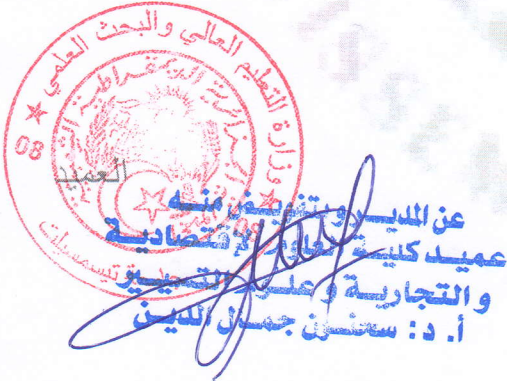 وزارة التعليم العالي والبحث العلمي
الجمهورية الجزائرية
08
تيسمسيلت
العميد
عن المدير وبتفويض منه
عميد كلية العلوم الإقتصادية
و التجارية و علوم التسيير
أ. د: سحنون جمال الدين